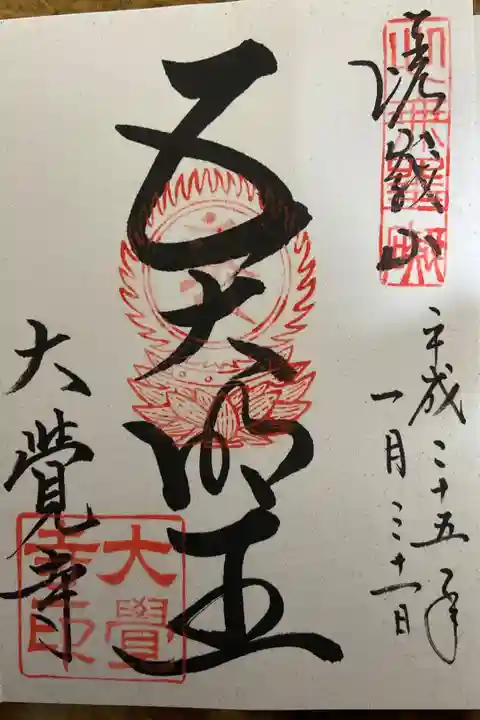 嵯峨山
平成二十五年
一月三十一日
五大明王
大覺寺
大覺
寺印